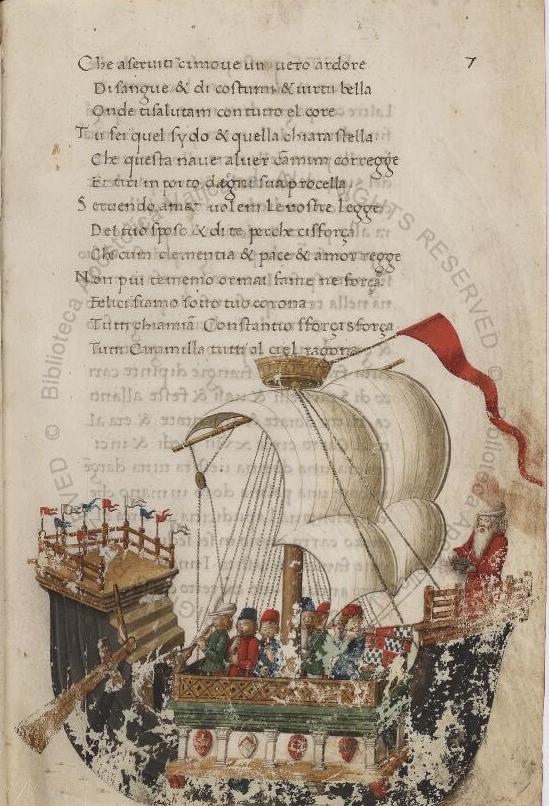 7
Che aseruiti cimoue un uero ardore
Di sangue & di costumi & uirtu bella
Onde tisalutam con tutto el core
Tu sei quel sydo & quella chiara stella
Che questa naue aluer camim corregge
Et tiri in porto dagni sua procella
Seruendo amar uolem le vostre legge
Del tuo sposo & di te perche cisforça
Che cum clementia & pace & amor regge
Non piu tememo ormai fame ne força
Felici siamo sotto tuo corona
Tutti chiamiã Constantio sforçi sforça
Tutti Cammilla tutti al ciel
© Biblioteca Apostolica Vaticana
RIGHTS RESERVED